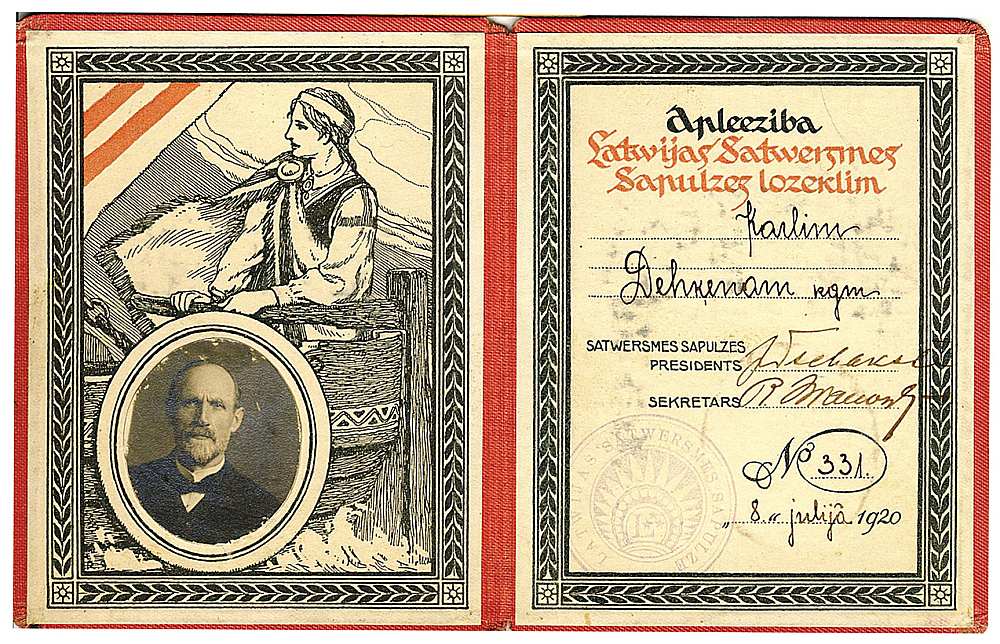 Apleeziba
Latwijas Satwersmes
Sapulzes lozeklim
Karlim
Dehķenam kgm
SATWERSMES SAPULZES
PRESIDENTS
SEKRETARS
№ 331.
"8." julijâ 1920
LATWIJAS SATWERSMES SAPULZE